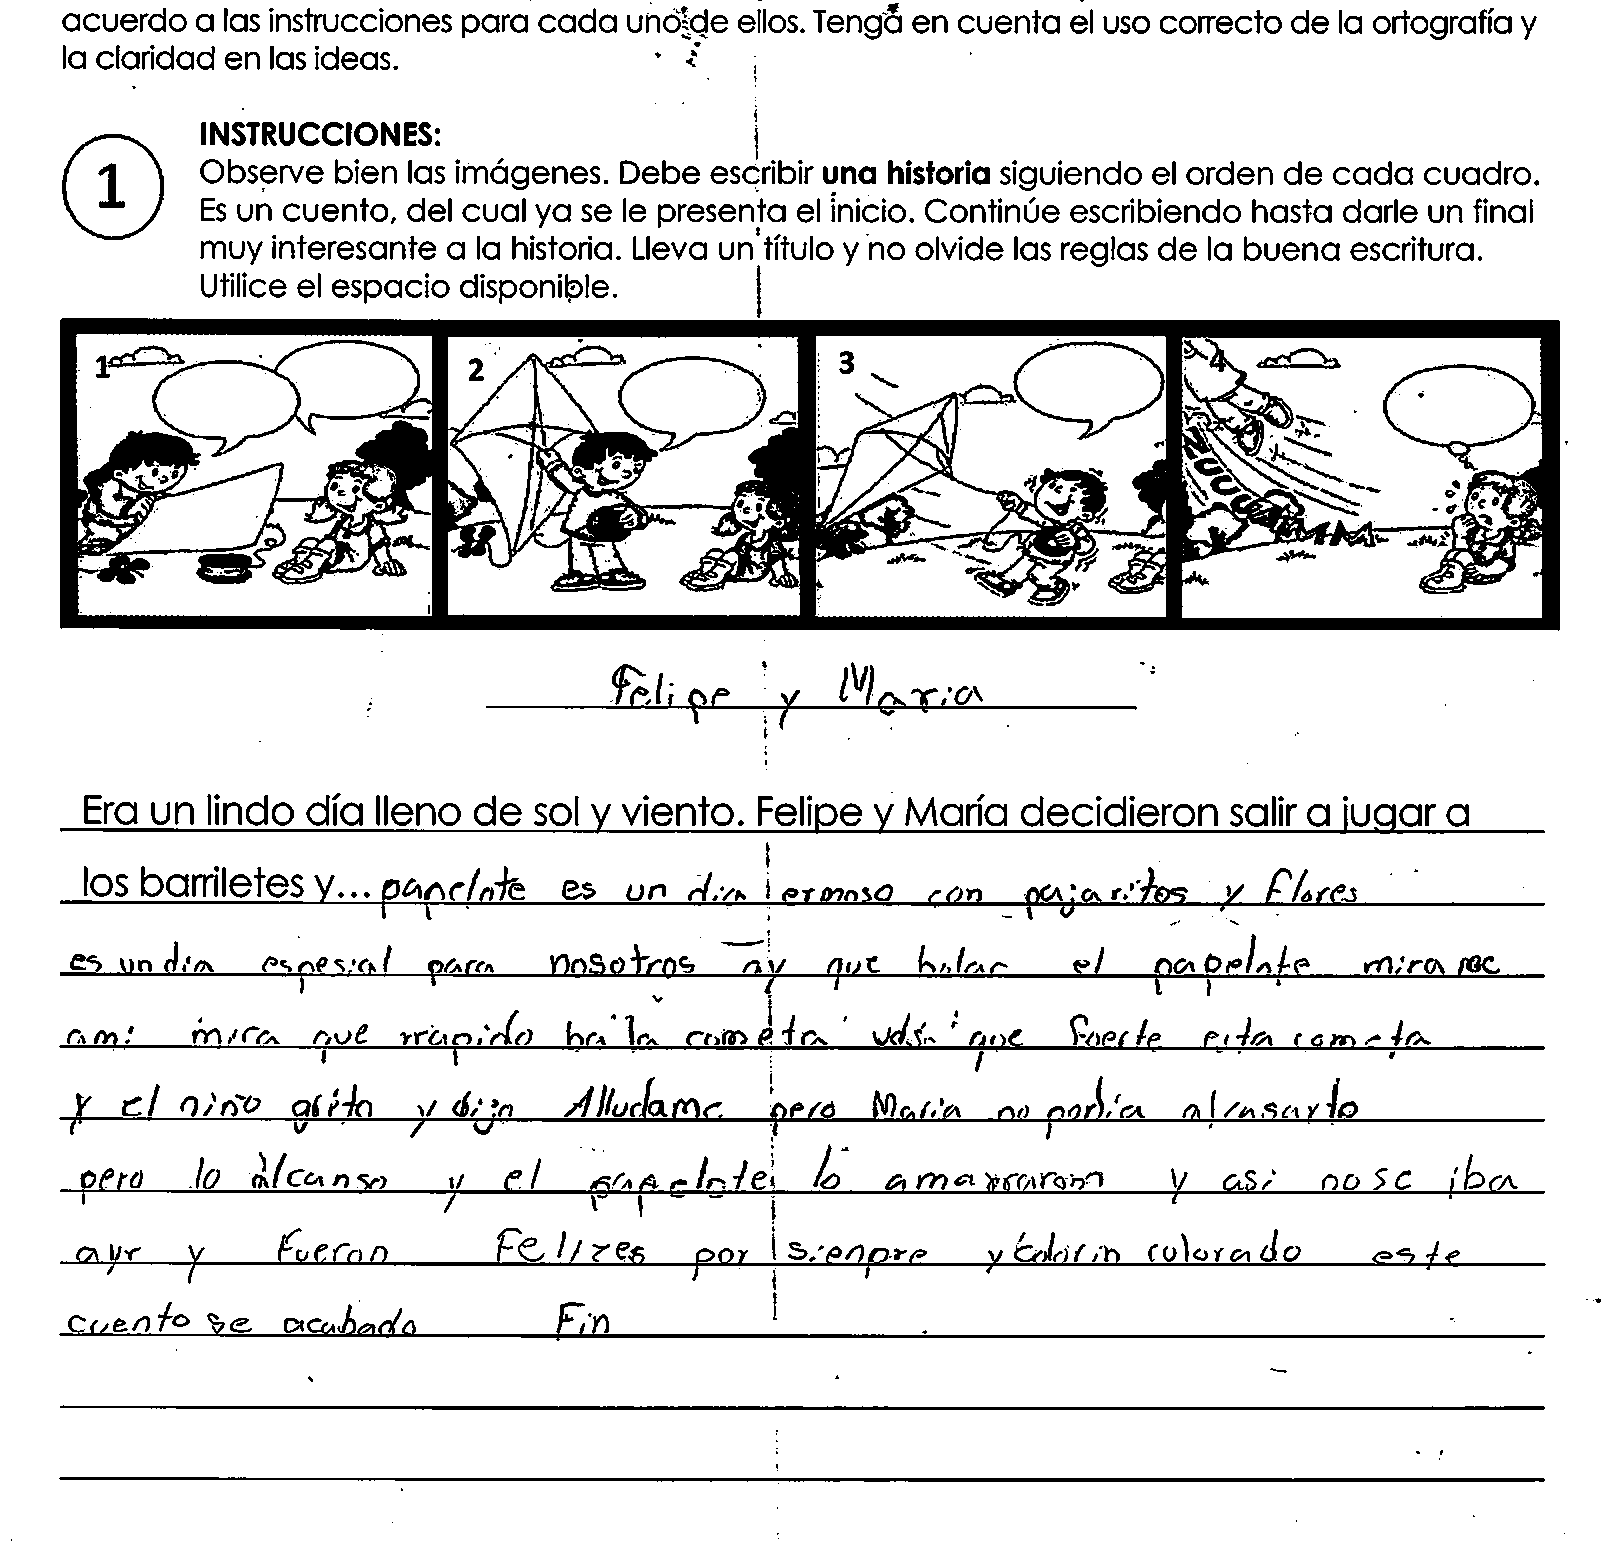 acuerdo a las instrucciones para cada uno de ellos. Tenga en cuenta el uso correcto de la ortografía y
la claridad en las ideas.
1
INSTRUCCIONES:
Observe bien las imágenes. Debe escribir una historia siguiendo el orden de cada cuadro.
Es un cuento, del cual ya se le presenta el inicio. Continúe escribiendo hasta darle un final
muy interesante a la historia. Lleva un título y no olvide las reglas de la buena escritura.
Utilice el espacio disponible.
1 2 3 4
Felipe y Maria
Era un lindo día lleno de sol y viento. Felipe y María decidieron salir a jugar a
los barriletes y... papelote es un dia ermoso con pajaritos y Flores
es un dia espesial para nosotros ay que holar el papelote mira
ami mira que rrapido ba la cometa que fuerte esta cometa
y el niño grito y dijo Alludame pero Maria no podia alcansarlo
pero lo alcanso y el papelote lo amarraron y asi no se iba
y Fueron Felizes por sienpre y Colorin colorado este
cuento se acabado Fin